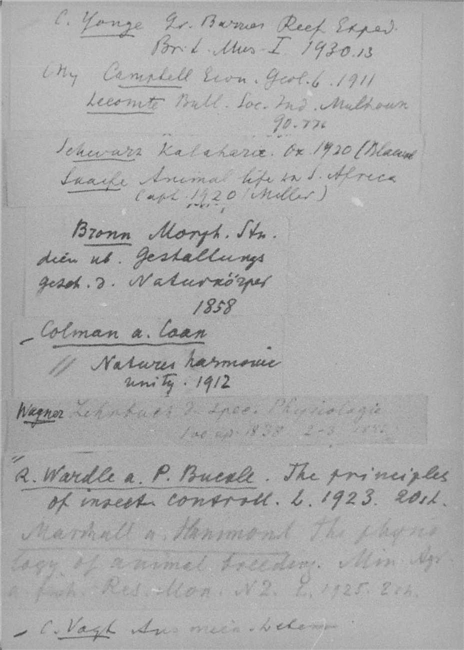 C. Yonge Gr. Barrier Reef Exped.
Brit. Mus. I 1930.13
Campbell Econ. Geol. 6. 1911
Lecomte Bull. Soc. Ind. Mulhouse
90.
Schwarz Kalahari. Ox. 1920 (Blackwell
Animal life in S. Africa
Capt. 1920 (Miller)
Bronn Morph. Stu.
dien üb. Gestaltungs
gesch. d. Naturkörper
1858
Colman a. Coan
" Natures harmonic
unity. 1912
Wagner Lehrbuch d. spec. Physiologie
1838 2-3
R. Wardle a. P. Buckle. The principles
of insect controll. L. 1923. 20sh.
Marshall a. Hammond The physio
logy of animal breeding. Min. Agr.
a. fish. Res. Mon. N2. L. 1925. 2sh.
C. Vogt Aus mein. Leben